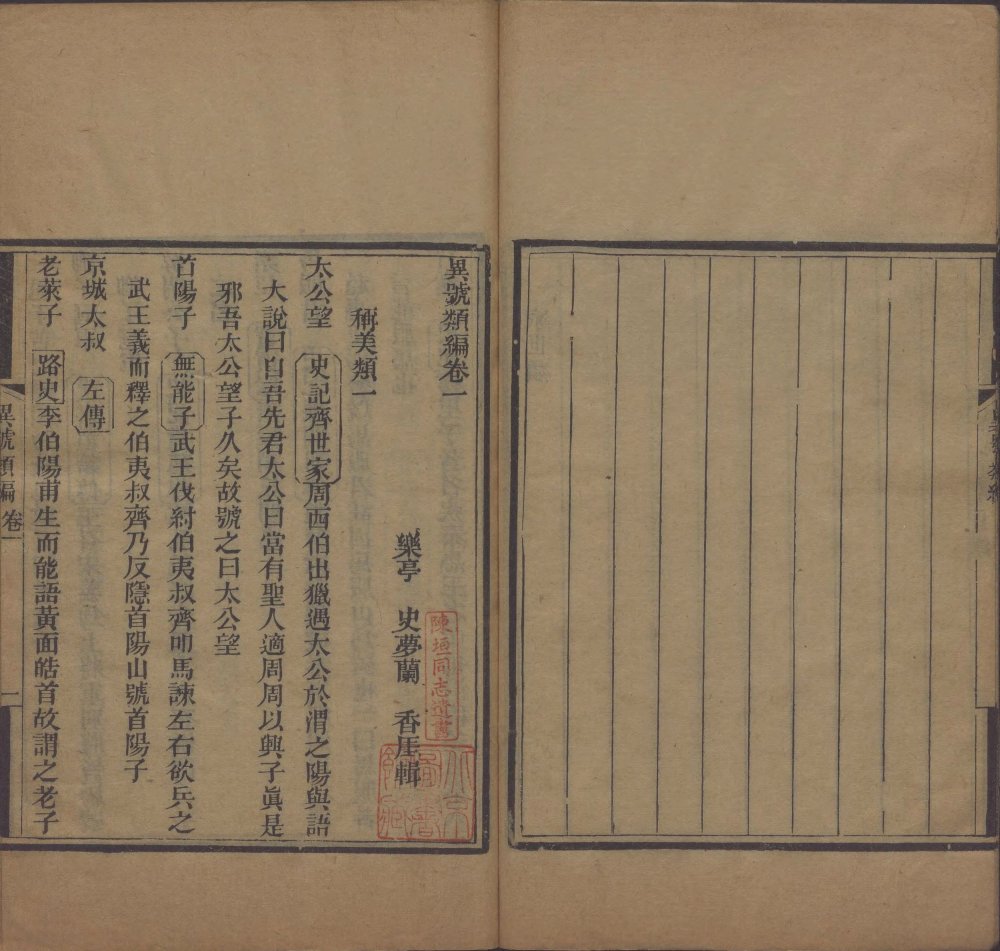 異號類編卷一
樂亭 史夢蘭 香厓輯
稱美類一
太公望 史記齊世家周西伯出獵遇太公於渭之陽與語
大說曰自吾先君太公曰當有聖人適周周以興子眞是
邪吾太公望子久矣故號之曰太公望
首陽子 無能子武王伐紂伯夷叔齊叩馬諫左右欲兵之
武王義而釋之伯夷叔齊乃反隱首陽山號首陽子
京城太叔 左傳
老萊子 路史李伯陽甫生而能語黃面皓首故謂之老子
異號類編 卷一
一
陳垣同志遺書